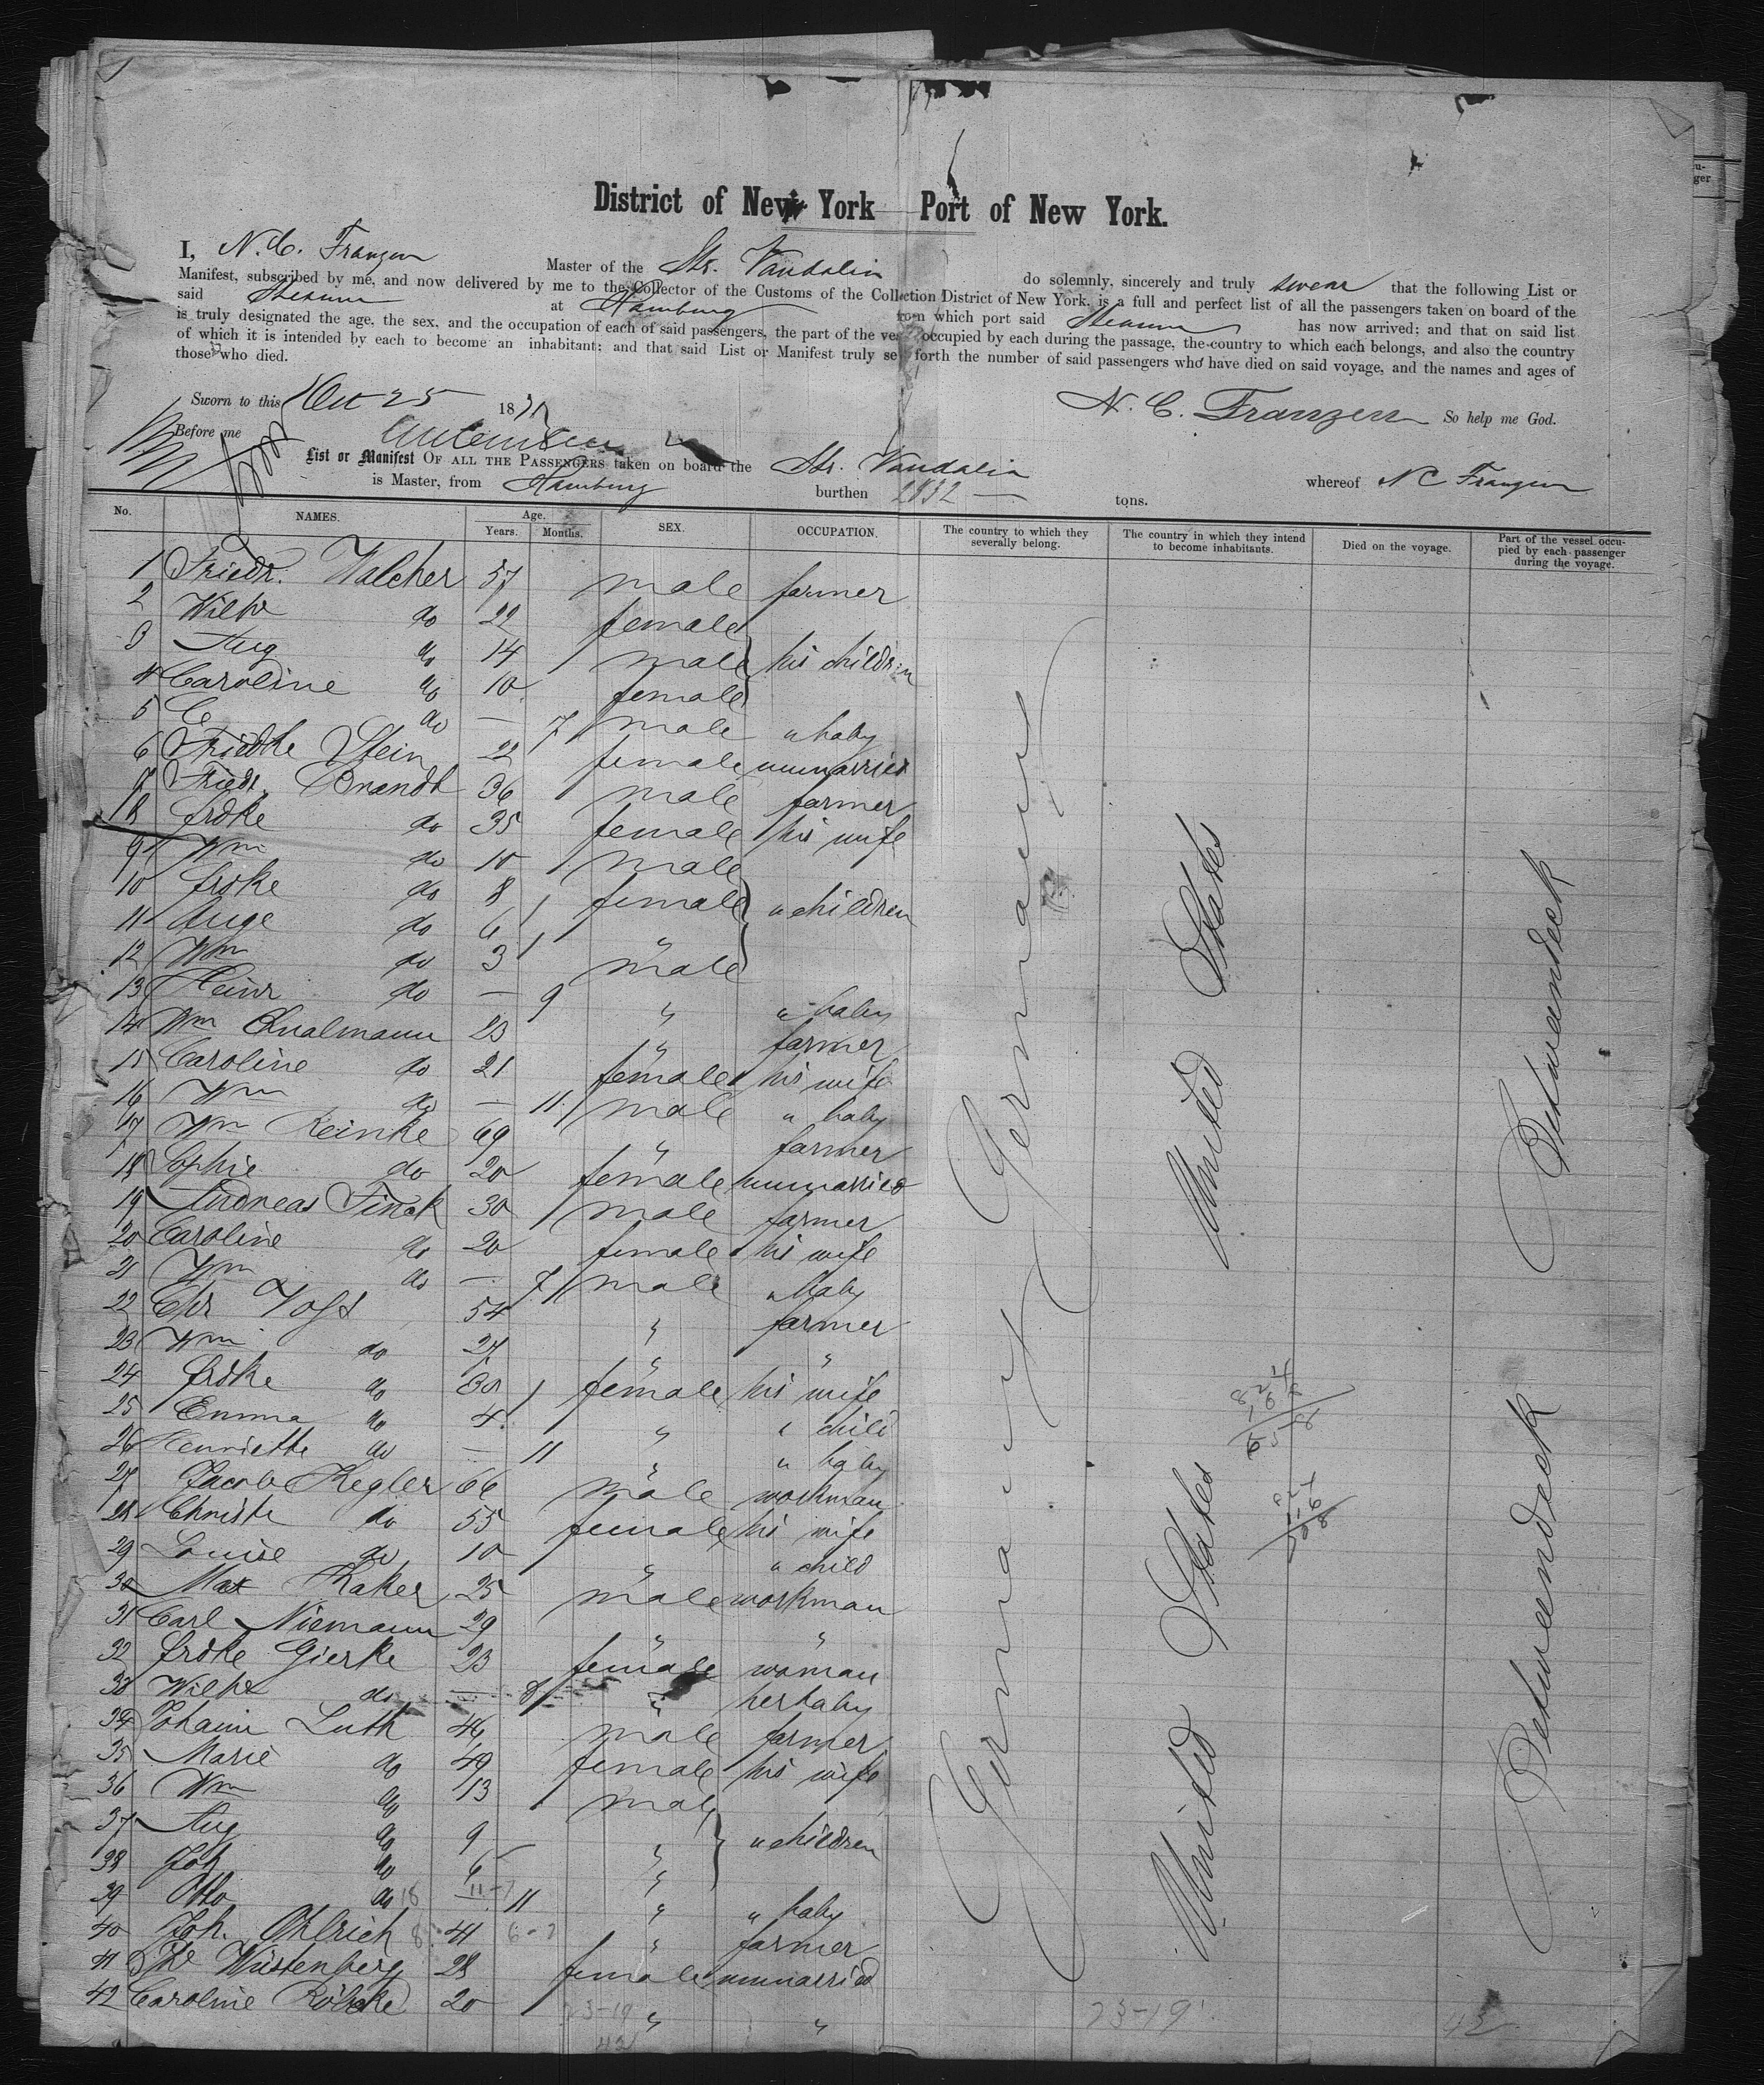 District of New York Port of New York.
I, N. C. Franzen Master of the Str. Vandalia do solemnly, sincerely and truly swear that the following List or
Manifest, subscribed by me, and now delivered by me to the Collector of the Customs of the Collection District of New York, is a full and perfect list of all the passengers taken on board of the
said Steamer at Hamburg from which port said Steamer has now arrived; and that on said list
is truly designated the age, the sex, and the occupation of each of said passengers, the part of the vessel occupied by each during the passage, the country to which each belongs, and also the country
of which it is intended by each to become an inhabitant; and that said List or Manifest truly sets forth the number of said passengers who have died on said voyage, and the names and ages of
those who died.
Sworn to this Oct 25 187
N. C. Franzen So help me God.
Before me
List or Manifest OF ALL THE PASSENGERS taken on board the Str. Vandalia whereof N C Franzen
is Master, from Hamburg burthen 2832 tons.
No. NAMES. Age. Years. Months. SEX. OCCUPATION. The country to which they severally belong. The country in which they intend to become inhabitants. Died on the voyage. Part of the vessel occupied by each passenger during the voyage.
1 Friedr. Walcher 57 male farmer
2 Wilhe do 22 female
3 Aug do 14 male his children
4 Caroline do 10 female
5 C do — 7 male " baby
6 Friedke Stein 22 female unmarried
7 Friedr. Brandt 36 male farmer
8 frdke do 35 female his wife
9 Wm do 10 male
10 frdke do 8 female " children
11 Auge do 6 "
12 Wm do 3 male
13 Heinr do — 9 " " baby
14 Wm Qualmann 23 " farmer
15 Caroline do 21 female his wife
16 Wm do — 11 male " baby
17 Wm Reinke 69 " farmer
18 Sophie do 20 female unmarried
19 Andreas Finck 30 male farmer
20 Caroline do 20 female his wife
21 Wm do — 7 male " baby
22 Chr Vogt 54 " farmer
23 Wm do 27 " "
24 frdke do 30 female his wife
25 Emma do 4 " " child
26 Henriette do — 11 " " baby
27 Jacob Kegler 66 male workman
28 Christe do 55 female his wife
29 Louise do 10 " " child
30 Max Raker 25 male workman
31 Carl Niemann 29 " "
32 frdke Gierke 23 female woman
33 Wilhe do — 8 " her baby
34 Johann Luth 46 male farmer
35 Marie do 49 female his wife
36 Wm do 13 male
37 Aug do 9 " " children
38 Joh do 6 "
39 Otto do 11 " " baby
40 Joh. Ohlrich 41 " farmer
41 Wüstenberg 28 female unmarried
42 Caroline Rölcke 20 " "
Germany
Germany
United States
United States
Between deck
Between deck
23-19
42
23-19
42